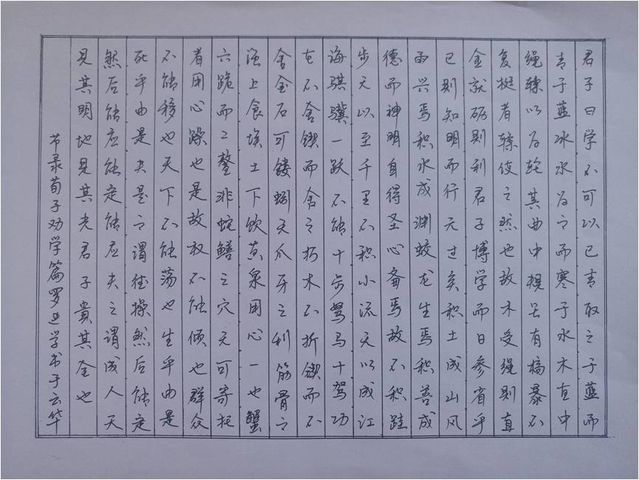 君子曰学不可以已青取之于蓝而
青于蓝冰水为之而寒于水木直中
绳輮以为轮其曲中规虽有槁暴不
复挺者輮使之然也故木受绳则直
金就砺则利君子博学而日参省乎
己则知明而行无过矣积土成山风
雨兴焉积水成渊蛟龙生焉积善成
德而神明自得圣心备焉故不积跬
步无以至千里不积小流无以成江
海骐骥一跃不能十步驽马十驾功
在不舍锲而舍之朽木不折锲而不
舍金石可镂蚓无爪牙之利筋骨之
强上食埃土下饮黄泉用心一也蟹
六跪而二螯非蛇鳝之穴无可寄托
者用心躁也是故权不能倾也群众
不能移也天下不能荡也生乎由是
死乎由是夫是之谓德操然后能定
然后能应能定能应夫之谓成人天
见其明地见其光君子贵其全也
节录荀子劝学篇罗进学书于云华